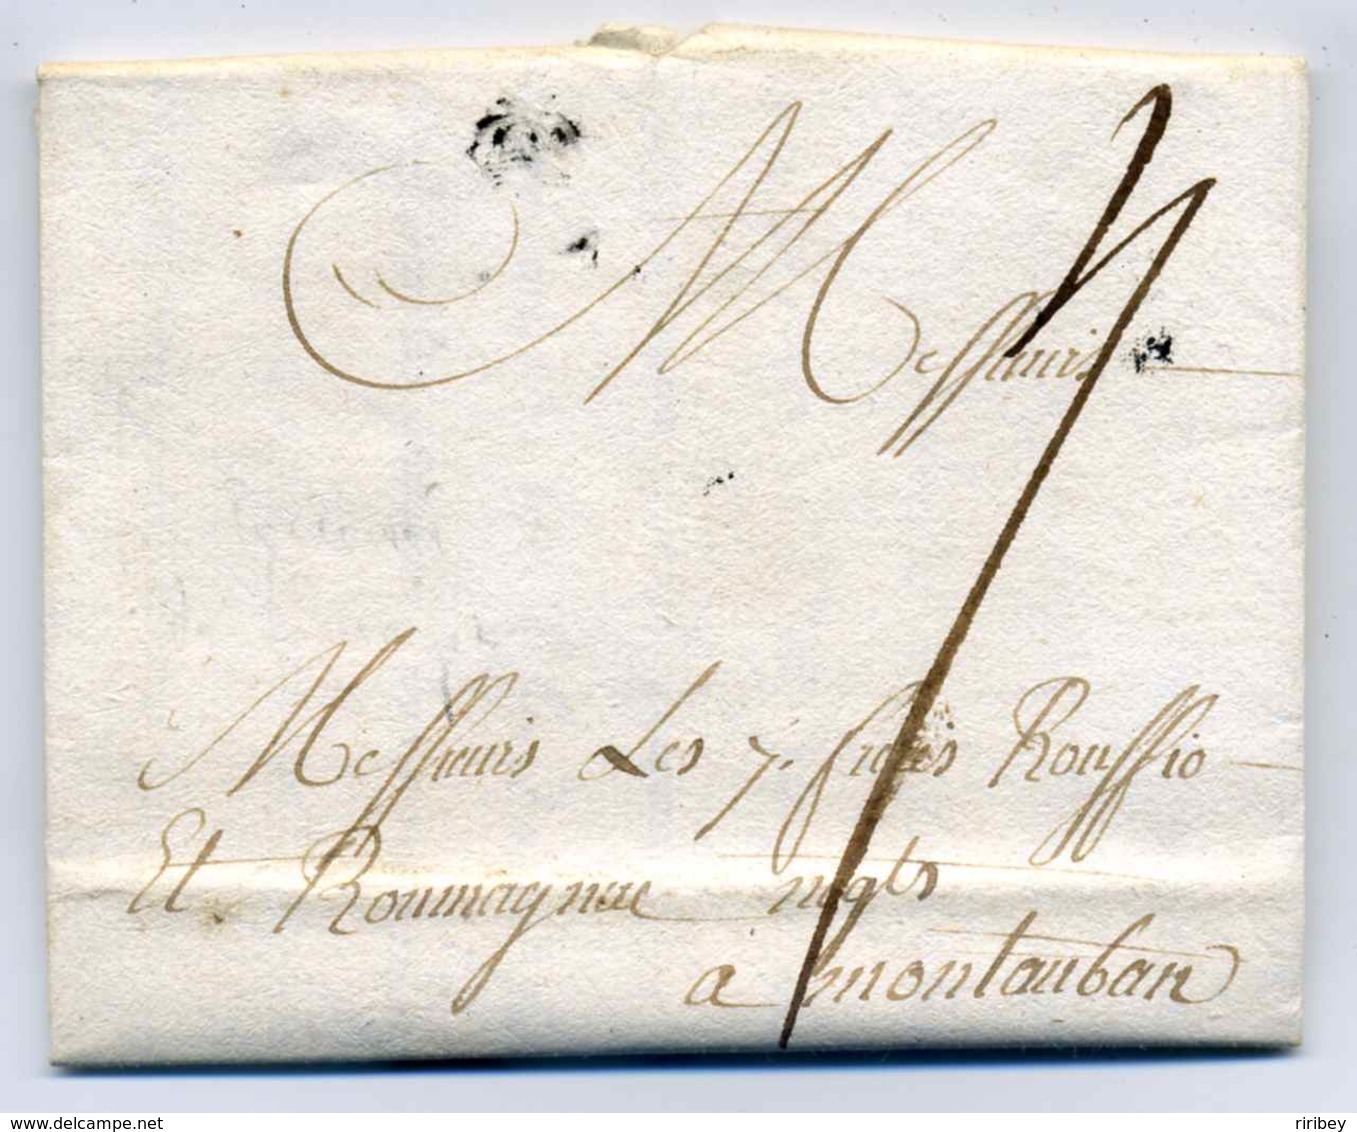 Messieurs
Messieurs Les 7. freres Rouffio
Et Roumagnac negts
a montauban
delcampe.net
riribey